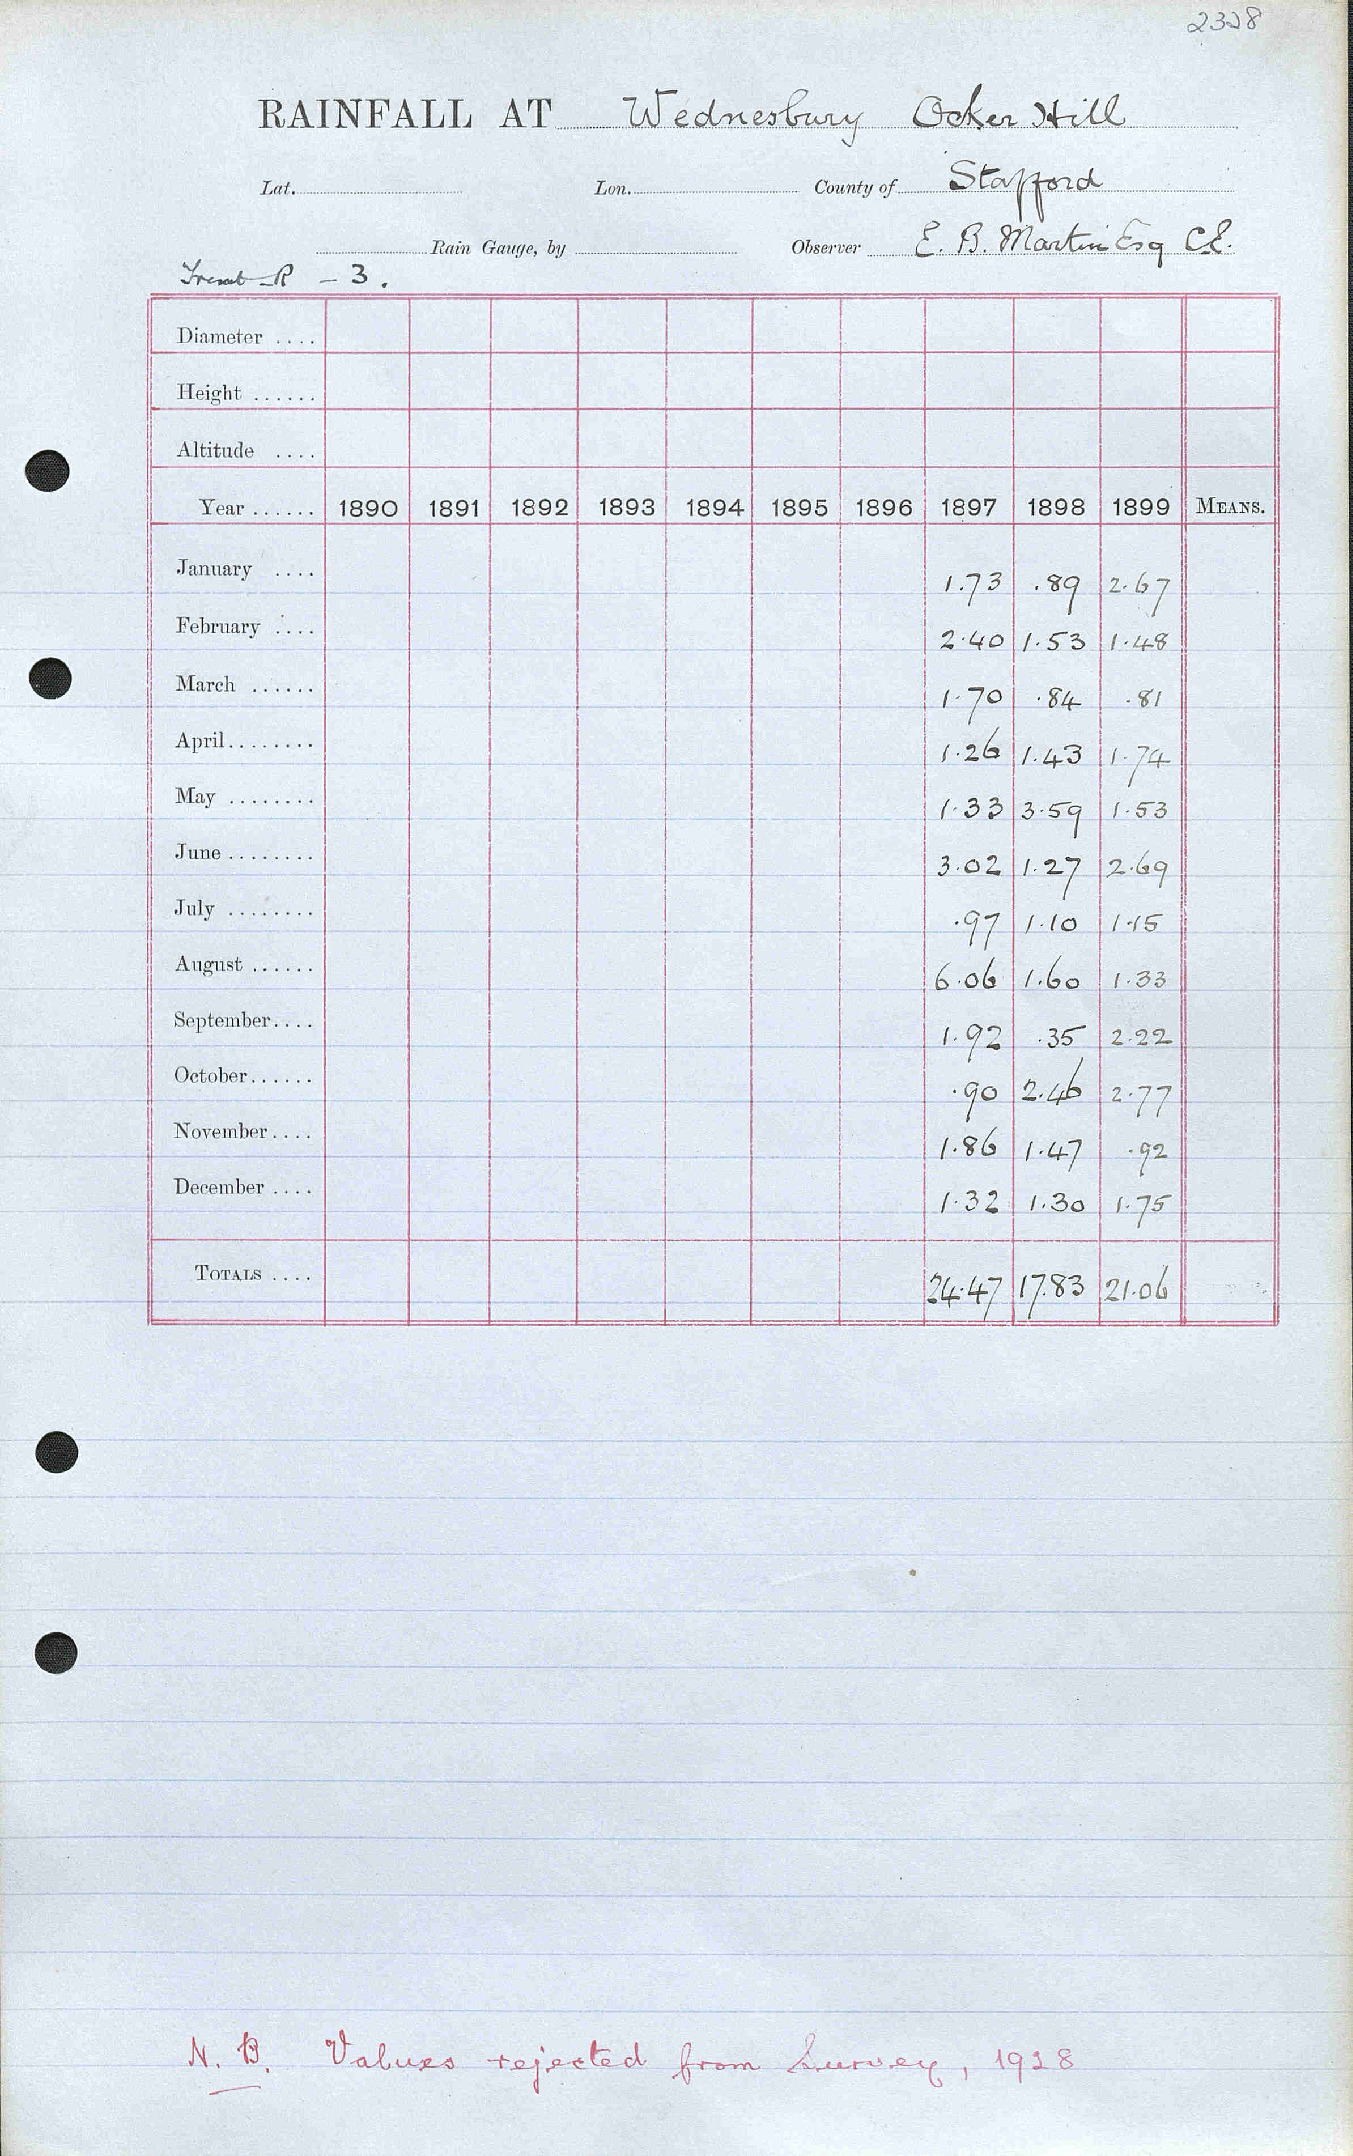 2328
RAINFALL AT Wednesbury Ocker Hill
Lat. Lon. County of Stafford
Rain Gauge, by Observer E. B. Martin Esq C.E.
Trent R - 3.
Diameter ....
Height ......
Altitude ....
Year ...... 1890 1891 1892 1893 1894 1895 1896 1897 1898 1899 MEANS.
January .... 1.73 .89 2.67
February .... 2.40 1.53 1.48
March ...... 1.70 .84 .81
April........ 1.26 1.43 1.74
May ........ 1.33 3.59 1.53
June ........ 3.02 1.27 2.69
July ........ .97 1.10 1.15
August ...... 6.06 1.60 1.33
September.... 1.92 .35 2.22
October...... .90 2.46 2.77
November.... 1.86 1.47 .92
December .... 1.32 1.30 1.75
TOTALS .... 24.47 17.83 21.06
N. B. Values rejected from Survey, 1928